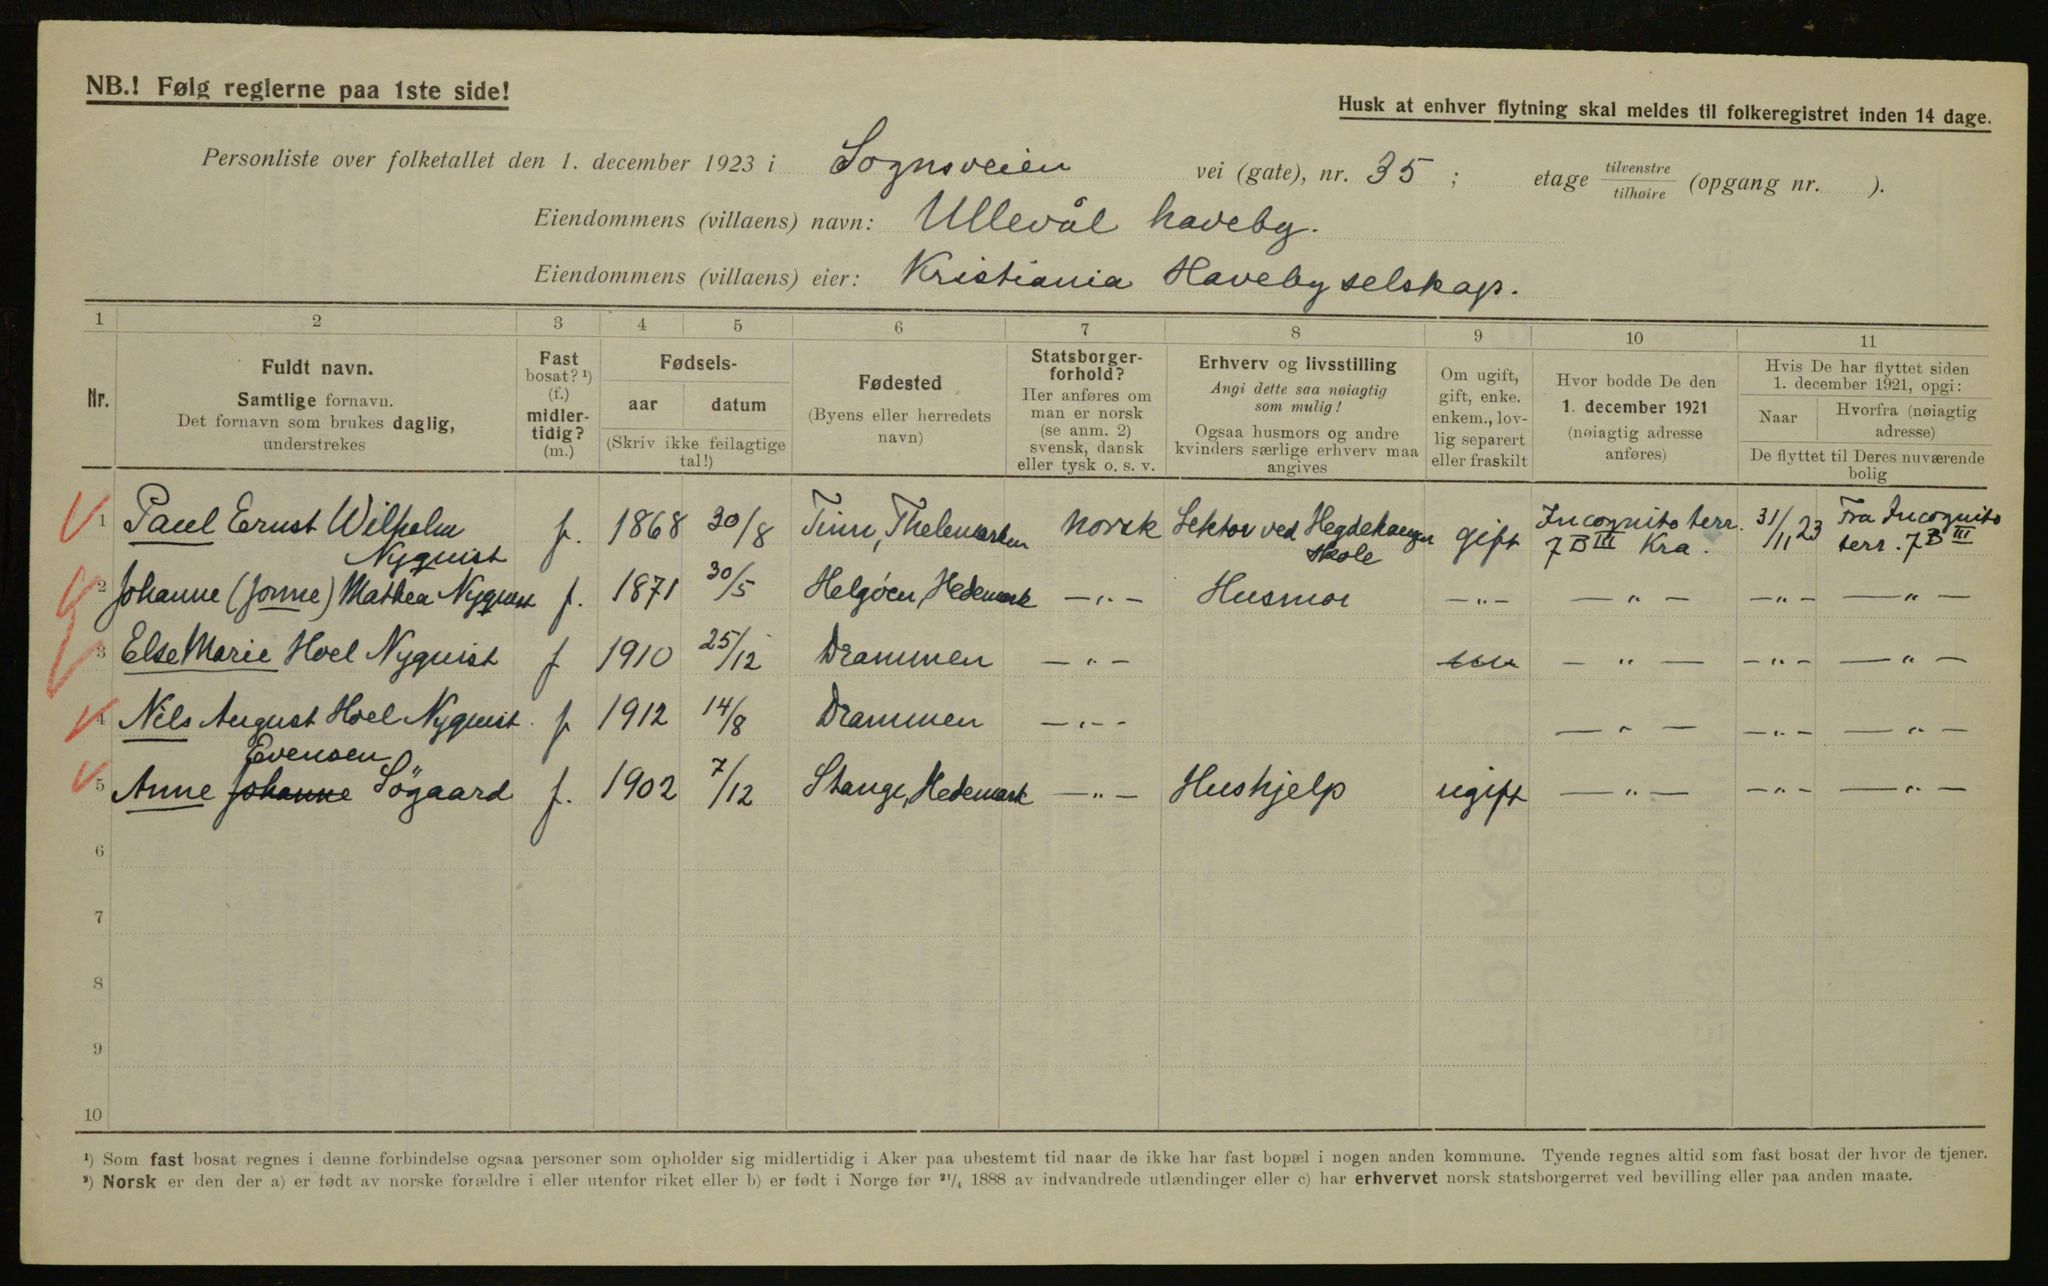 NB.! Følg reglerne paa 1ste side!
Husk at enhver flytning skal meldes til folkeregistret inden 14 dage.
Personliste over folketallet den 1. december 1923 i Sognsveien vei (gate), nr. 35 ; etage tilvenstre/tilhøire (opgang nr. ).
Eiendommens (villaens) navn: Ullevål haveby.
Eiendommens (villaens) eier: Kristiania Havebyselskap.
1 2 3 4 5 6 7 8 9 10 11
Nr.
Fuldt navn.
Samtlige fornavn.
Det fornavn som brukes daglig,
understrekes
Fast
bosat? ¹)
(f.)
midler-
tidig?
(m.)
Fødsels-
aar datum
(Skriv ikke feilagtige
tal!)
Fødested
(Byens eller herredets
navn)
Statsborger-
forhold?
Her anføres om
man er norsk
(se anm. 2)
svensk, dansk
eller tysk o. s. v.
Erhverv og livsstilling
Angi dette saa nøiagtig
som mulig!
Ogsaa husmors og andre
kvinders særlige erhverv maa
angives
Om ugift,
gift, enke.
enkem., lov-
lig separert
eller fraskilt
Hvor bodde De den
1. december 1921
(nøiagtig adresse
anføres)
Hvis De har flyttet siden
1. december 1921, opgi:
Naar
Hvorfra (nøiagtig
adresse)
De flyttet til Deres nuværende
bolig
1 Paul Ernst Wilhelm Nyquist f. 1868 30/8 Tinn, Thelemarken Norsk Lektor ved Hegdehaugen Skole gift Incognito terr. 7 B III Kra. 31/11 23 Fra Incognito terr. 7 B III
2 Johanne (Jonne) Mathea Nyquist f. 1871 30/5 Helgøen, Hedemark — „ — Husmor — „ — — „ — — „ — — „ —
3 Else Marie Hoel Nyquist f 1910 25/12 Drammen — „ — — „ — — „ — — „ —
4 Nils August Hoel Nyquist. f 1912 14/8 Drammen — „ — — „ — — „ — — „ —
Evensen
5 Anne Johanne Søgaard f. 1902 7/12 Stange, Hedemark — „ — Hushjelp ugift — „ — — „ — — „ —
6
7
8
9
10
¹) Som fast bosat regnes i denne forbindelse ogsaa personer som opholder sig midlertidig i Aker paa ubestemt tid naar de ikke har fast bopæl i nogen anden kommune. Tyende regnes altid som fast bosat der hvor de tjener.
²) Norsk er den der a) er født av norske forældre i eller utenfor riket eller b) er født i Norge før ²¹/₄ 1888 av indvandrede utlændinger eller c) har erhvervet norsk statsborgerret ved bevilling eller paa anden maate.